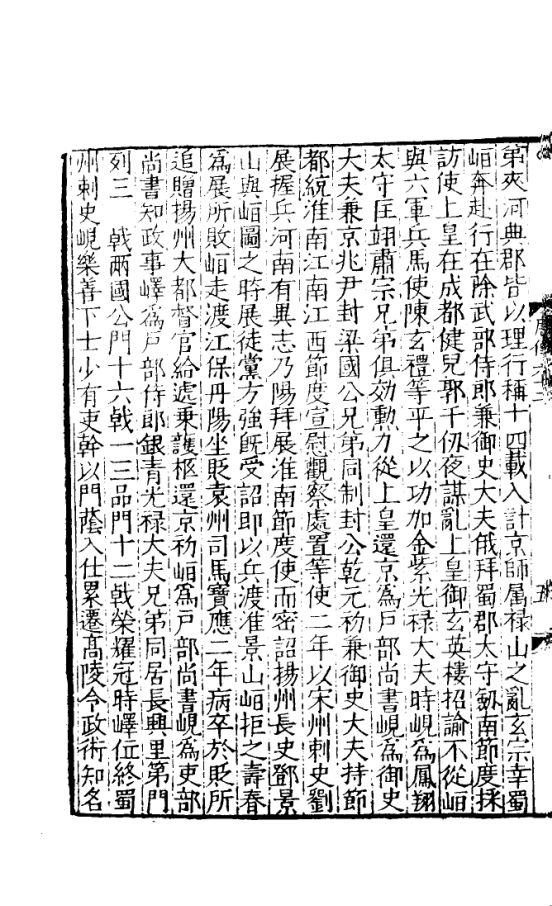 第夾河典郡皆以理行稱十四載入計京師屬祿山之亂玄宗幸蜀
峘奔赴行在除武部侍郎兼御史大夫俄拜蜀郡太守劔南節度採
訪使上皇在成都健兒郭千仭夜謀亂上皇御玄英樓招諭不從峘
與六軍兵馬使陳玄禮等平之以功加金紫光祿大夫時峴爲鳳翔
太守匡翊肅宗兄弟俱効勲力從上皇還京爲戶部尚書峴爲御史
大夫兼京兆尹封梁國公兄弟同制封公乾元初兼御史大夫持節
都統淮南江南江西節度宣慰觀察處置等使二年以宋州刺史劉
展握兵河南有異志乃陽拜展淮南節度使而密詔揚州長史鄧景
山與峘圖之時展徒黨方強旣受詔即以兵渡淮景山峘拒之壽春
爲展所敗峘走渡江保丹陽坐貶袁州司馬寶應二年病卒於貶所
追贈揚州大都督官給遞乗護柩還京初峘爲戶部尚書峴爲吏部
尚書知政事嶧爲戶部侍郎銀青光祿大夫兄弟同居長興里第門
列三 戟兩國公門十六戟一三品門十二戟榮耀冠時嶧位終蜀
州刺史峴樂善下士少有吏幹以門蔭入仕累遷高陵令政術知名